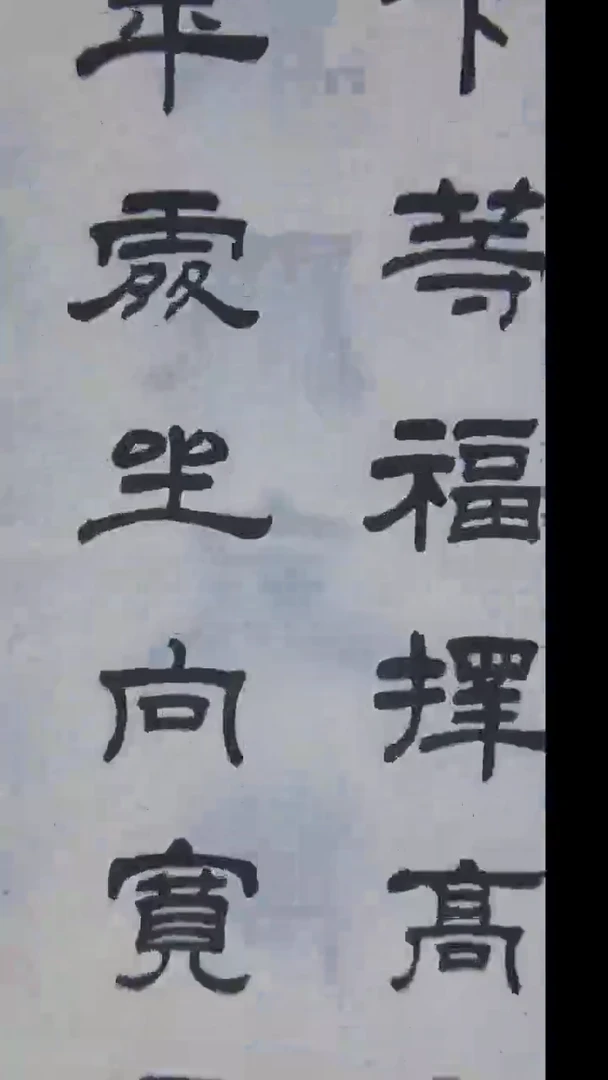 下等福擇高
平處坐向寬